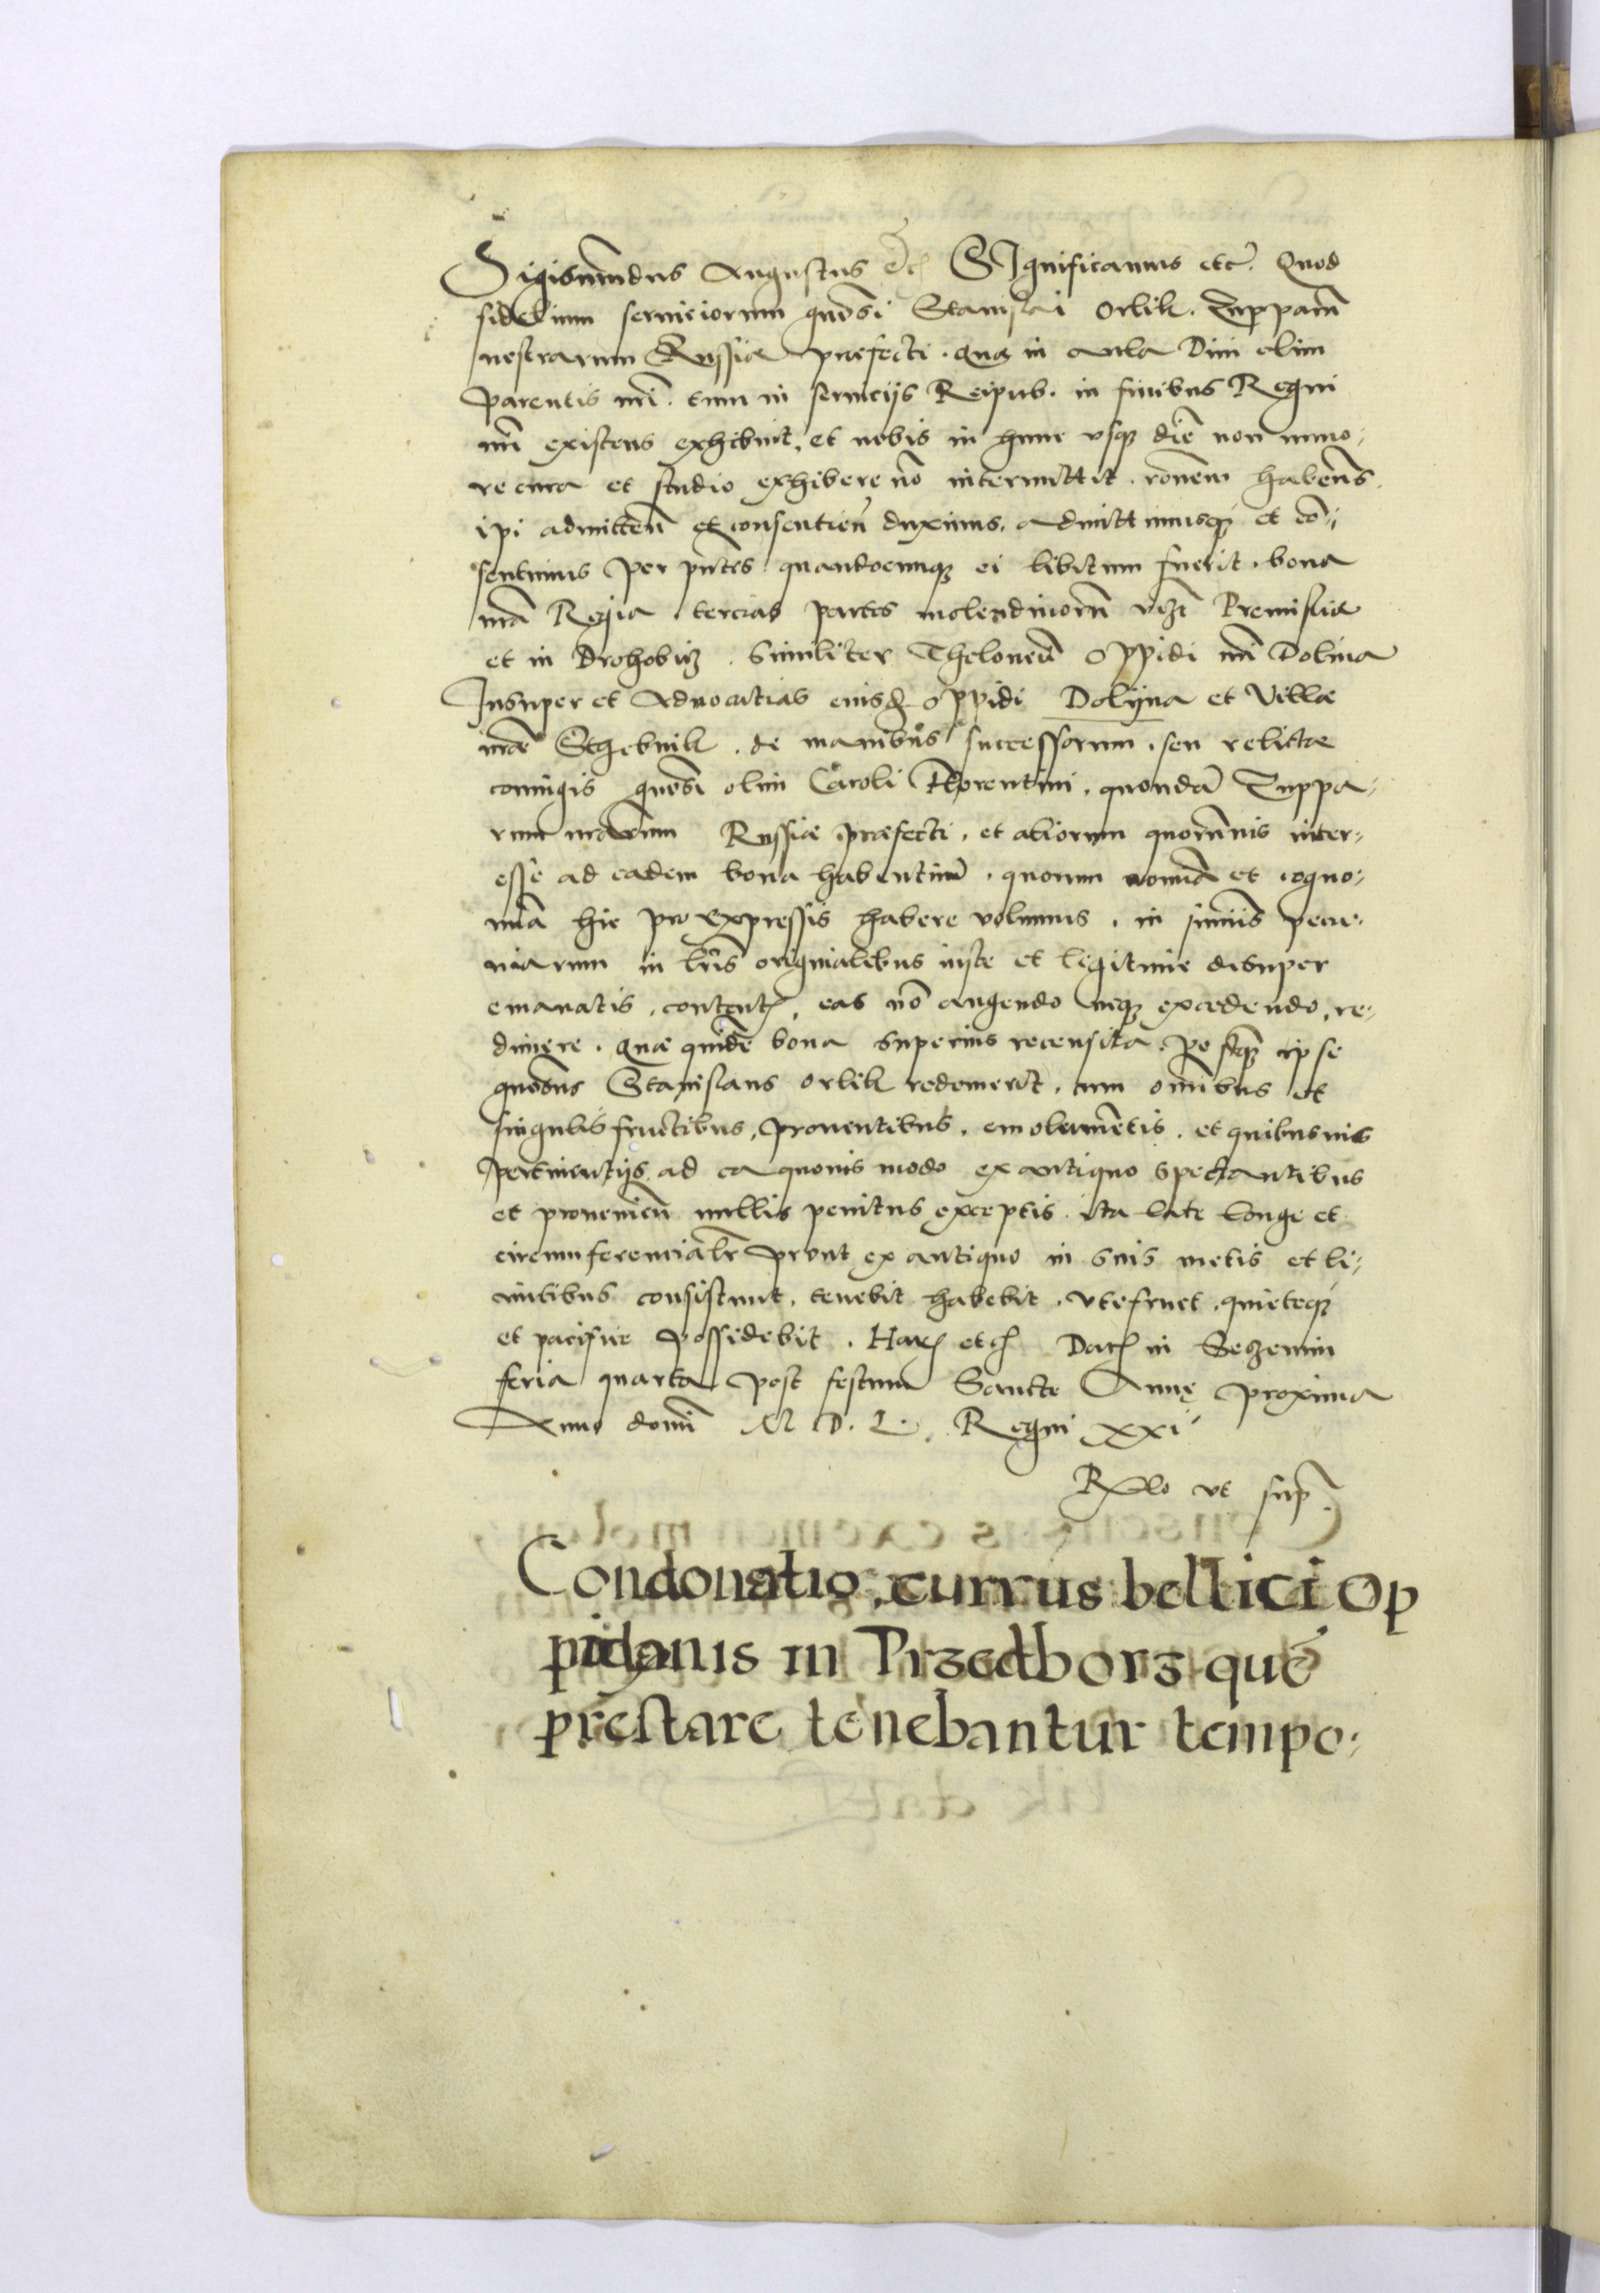 Sigismundus Augustus etc̃ SIgnificamus etc̃. Quod
fidelium seruiciorum gnõsi Stanislai Orlik. Zupparũ
nostrarum Russiæ præfecti. quæ in aula Diui olim
parentis nr̃i. tum in seruicijs Reipub. in finibus Regni
nr̃i existens exhibuit, et nobis in hunc vsq; diẽ non mino:
re cura et studio exhibere nõ intermittit. rõnem habentes.
ipi admitteñ et consentieñ duximus. Admittimusq; et cõ:
sentimus per pñtes. quandocunq; ei libitum fuerit. bona
nr̃a Regia. tercias partes molendinorũ vĩz Premisliæ
et in Drohobicz. similiter Theloneũ Oppidi nr̃i Dolina
Insuper et Aduocatias eiusd̃. Oppidi Dolyna et Villæ
nr̃æ Sthebnik. de manibus successorum. seu relictæ
coniugis gnõsi olim Caroli Florentini. quondã Zuppa:
rum nr̃arum Russiæ præfecti. et aliorum quorũuis inter:
esse ad eadem bona habentiũ. quorum nomĩa et cogno:
mĩa hic pro expressis habere volumus. in sum̃is pecu:
niarum in lrĩs originalibus iuste et legitime desuper
emanatis. content̃, eas nõ augendo neq; excedendo, re:
dimere. Quæ quidẽ bona superius recensita. postq̃ ipse
gnõsus Stanislaus Orlik redemerit. cum omĩbus et
singulis fructibus, prouentibus. emolumẽtis. et quibusuis
pertinentijs ad ea quouis modo ex antiquo spectantibus
et prouenieñ nullis penitus exceptis. ita late longe et
circumferencialr̃ prout ex antiquo in suis metis et li:
mitibus consistunt. tenebit habebit. vtefruet. quieteq;
et pacifice possidebit. Harũ etc̃ Dat̃ in
feria quarta post festum Sanctæ Annę proxima
Anno domĩ M D. L. Regni XXI
Rõlo vt sup̃.
Condonatio, currus bellici Op
pidanis in Przedborz quẽ
prestare tenebantur tempo: